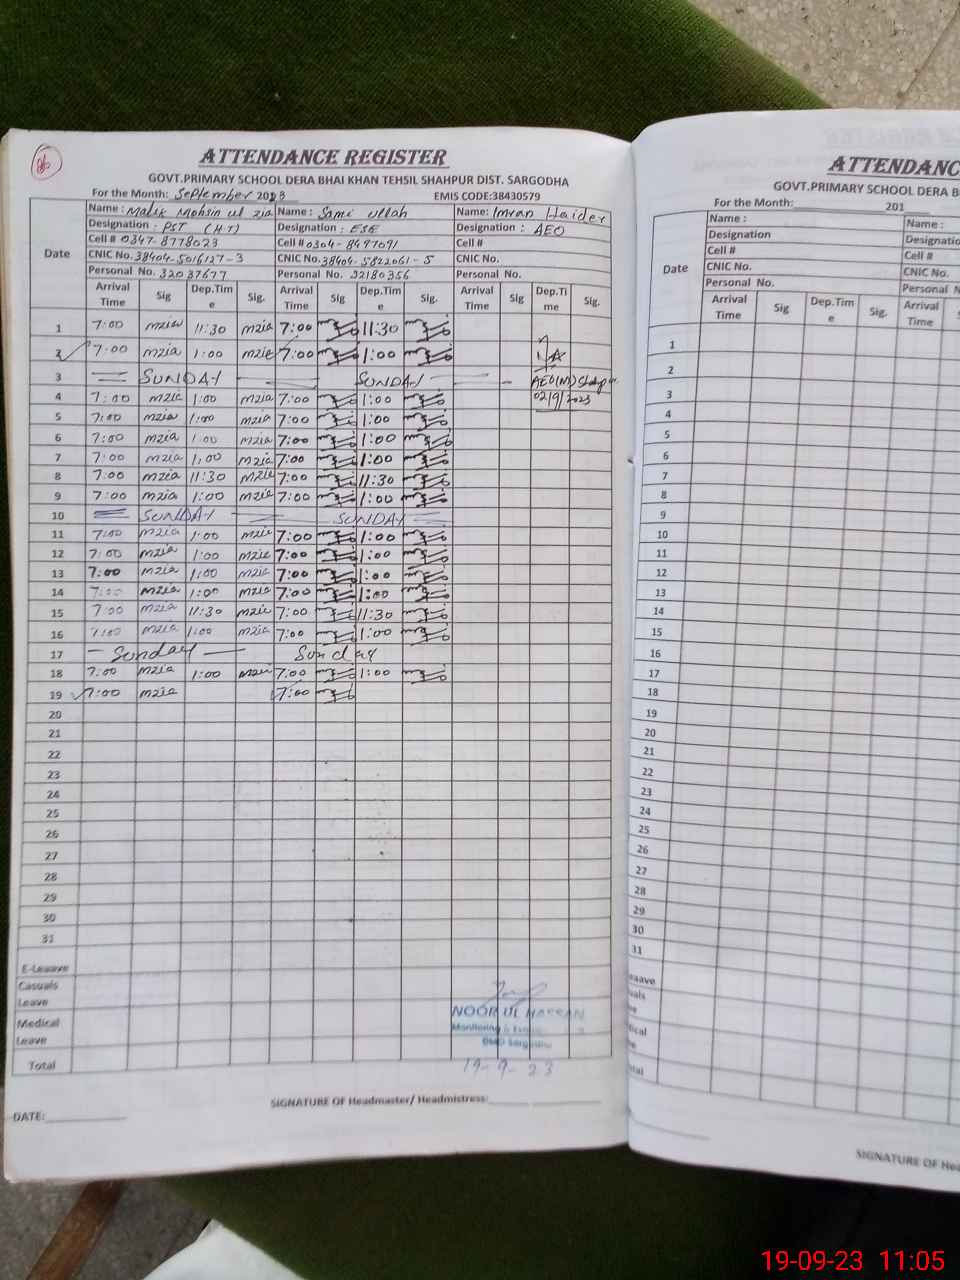 86
ATTENDANCE REGISTER
GOVT.PRIMARY SCHOOL DERA BHAI KHAN TEHSIL SHAHPUR DIST. SARGODHA
For the Month: September 2023 EMIS CODE:38430579
Date Name : Malik Mohsin ul zia Name : Sami ullah Name: Imran Haider
Designation : PST (H.T) Designation : ESE Designation : AEO
Cell # 0347-8778023 Cell # 0304-8497091 Cell #
CNIC No. 38404-5016127-3 CNIC No. 38404-5822061-5 CNIC No.
Personal No. 32037677 Personal No. 32180356 Personal No.
Arrival Time Sig Dep.Time Sig. Arrival Time Sig Dep.Time Sig. Arrival Time Sig Dep.Time Sig.
1 7:00 mzia 11:30 mzia 7:00 11:30
2 7:00 mzia 1:00 mzia 7:00 1:00
3 SUNDAY SUNDAY AEO(M)
4 7:00 mzia 1:00 mzia 7:00 1:00 02/9/2023
5 7:00 mzia 1:00 mzia 7:00 1:00
6 7:00 mzia 1:00 mzia 7:00 1:00
7 7:00 mzia 1:00 mzia 7:00 1:00
8 7:00 mzia 11:30 mzia 7:00 11:30
9 7:00 mzia 1:00 mzia 7:00 1:00
10 SUNDAY SUNDAY
11 7:00 mzia 1:00 mzia 7:00 1:00
12 7:00 mzia 1:00 mzia 7:00 1:00
13 7:00 mzia 1:00 mzia 7:00 1:00
14 7:00 mzia 1:00 mzia 7:00 1:00
15 7:00 mzia 11:30 mzia 7:00 11:30
16 7:00 mzia 1:00 mzia 7:00 1:00
17 Sunday Sunday
18 7:00 mzia 1:00 mzia 7:00 1:00
19 7:00 mzia 7:00
20
21
22
23
24
25
26
27
28
29
30
31
E-Leaave
Casuals Leave
Medical Leave
Total
NOOR UL HASSAN
Monitoring &
Sargodha
19-9-23
SIGNATURE OF Headmaster/ Headmistress:
DATE:
ATTENDANC
GOVT.PRIMARY SCHOOL DERA B
For the Month: 201
Date Name : Name :
Designation Designatio
Cell # Cell #
CNIC No. CNIC No.
Personal No. Personal N
Arrival Time Sig Dep.Time Sig. Arrival Time Sig
1
2
3
4
5
6
7
8
9
10
11
12
13
14
15
16
17
18
19
20
21
22
23
24
25
26
27
28
29
30
31
SIGNATURE OF Hea
19-09-23 11:05